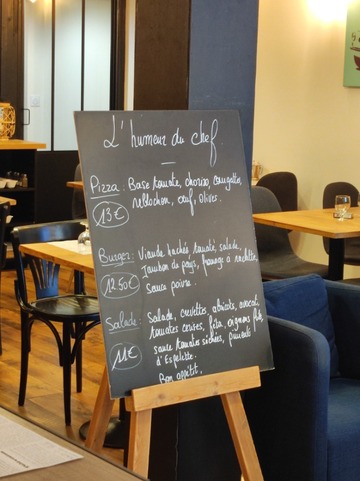 L'humeur du chef
Pizza : Base tomate, chorizo, courgettes,
13€ reblochon, œuf, olives.
Burger : Viande hachée, tomate, salade,
12.50€ Jambon de pays, fromage à raclette,
sauce poivre.
Salade : Salade, crevettes, abricots, avocat,
tomates cerises, féta, oignons frits,
11€ sauce tomates séchées, piments
d'Espelette.
Bon appétit.